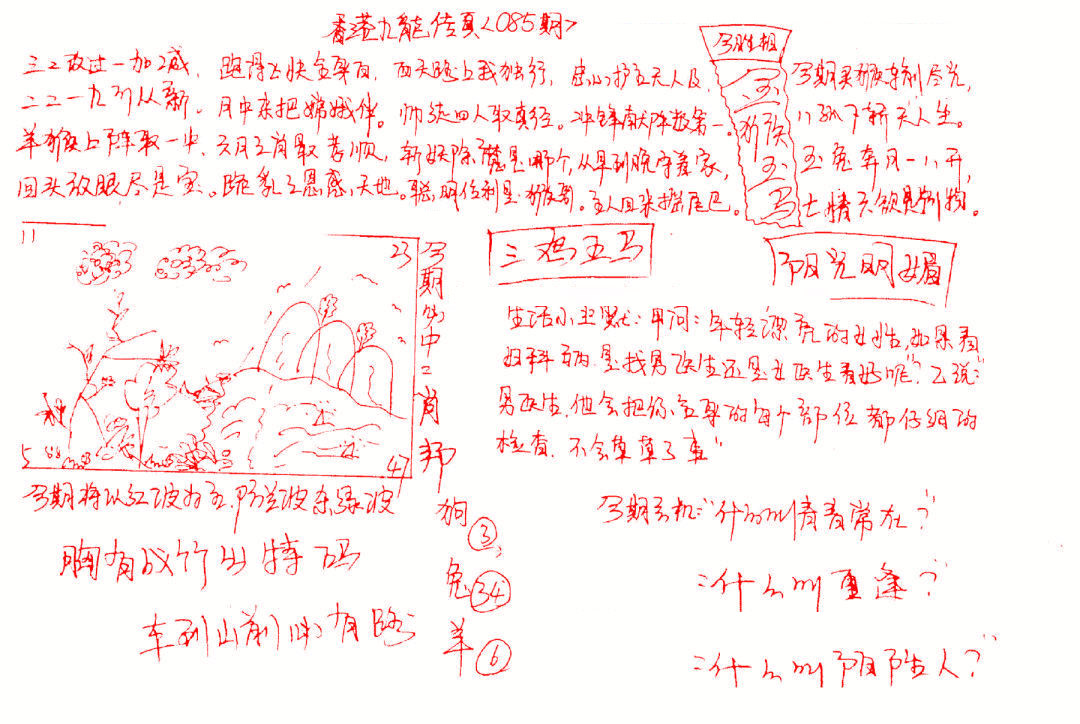 香港九龍传真<085期>
三二改过一加减，跑得比快全身白，西天路上我独行，忠心护主天人及，
二二一九列从新。月中来把嫦娥伴。师徒四人取真经。冲锋献阵数第一。
羊猴上阵取一中，六月之肖最孝顺，斩妖除魔是哪个，从早到晚守着家，
回头放眼尽是宝。跪乳之恩感天地。聪明伶利是猴哥。主人回来摇尾巴。
今胜相
玉
猴
玉
马
今期买猴转制尽光，
八 下 天人生。
玉兔奔月一八开，
七情六欲是别物。
11
23
5
47
今期必中二肖
狗③，
兔㉞
羊⑥
三鸡五马
阳光明媚
生活小幽默：甲问：年轻漂亮的女性，如果看
妇科病，是找男医生还是女医生看好呢"？乙说："
男医生，他会把你全身的每个部位都仔细的
检查，不会草草了事"
今期将以红波为主，防兰波杂绿波
胸有成竹出特码
车到山前必有路
今期玄机："什么叫青春常在？"
："什么叫重逢？"
："什么叫阴阳人？"